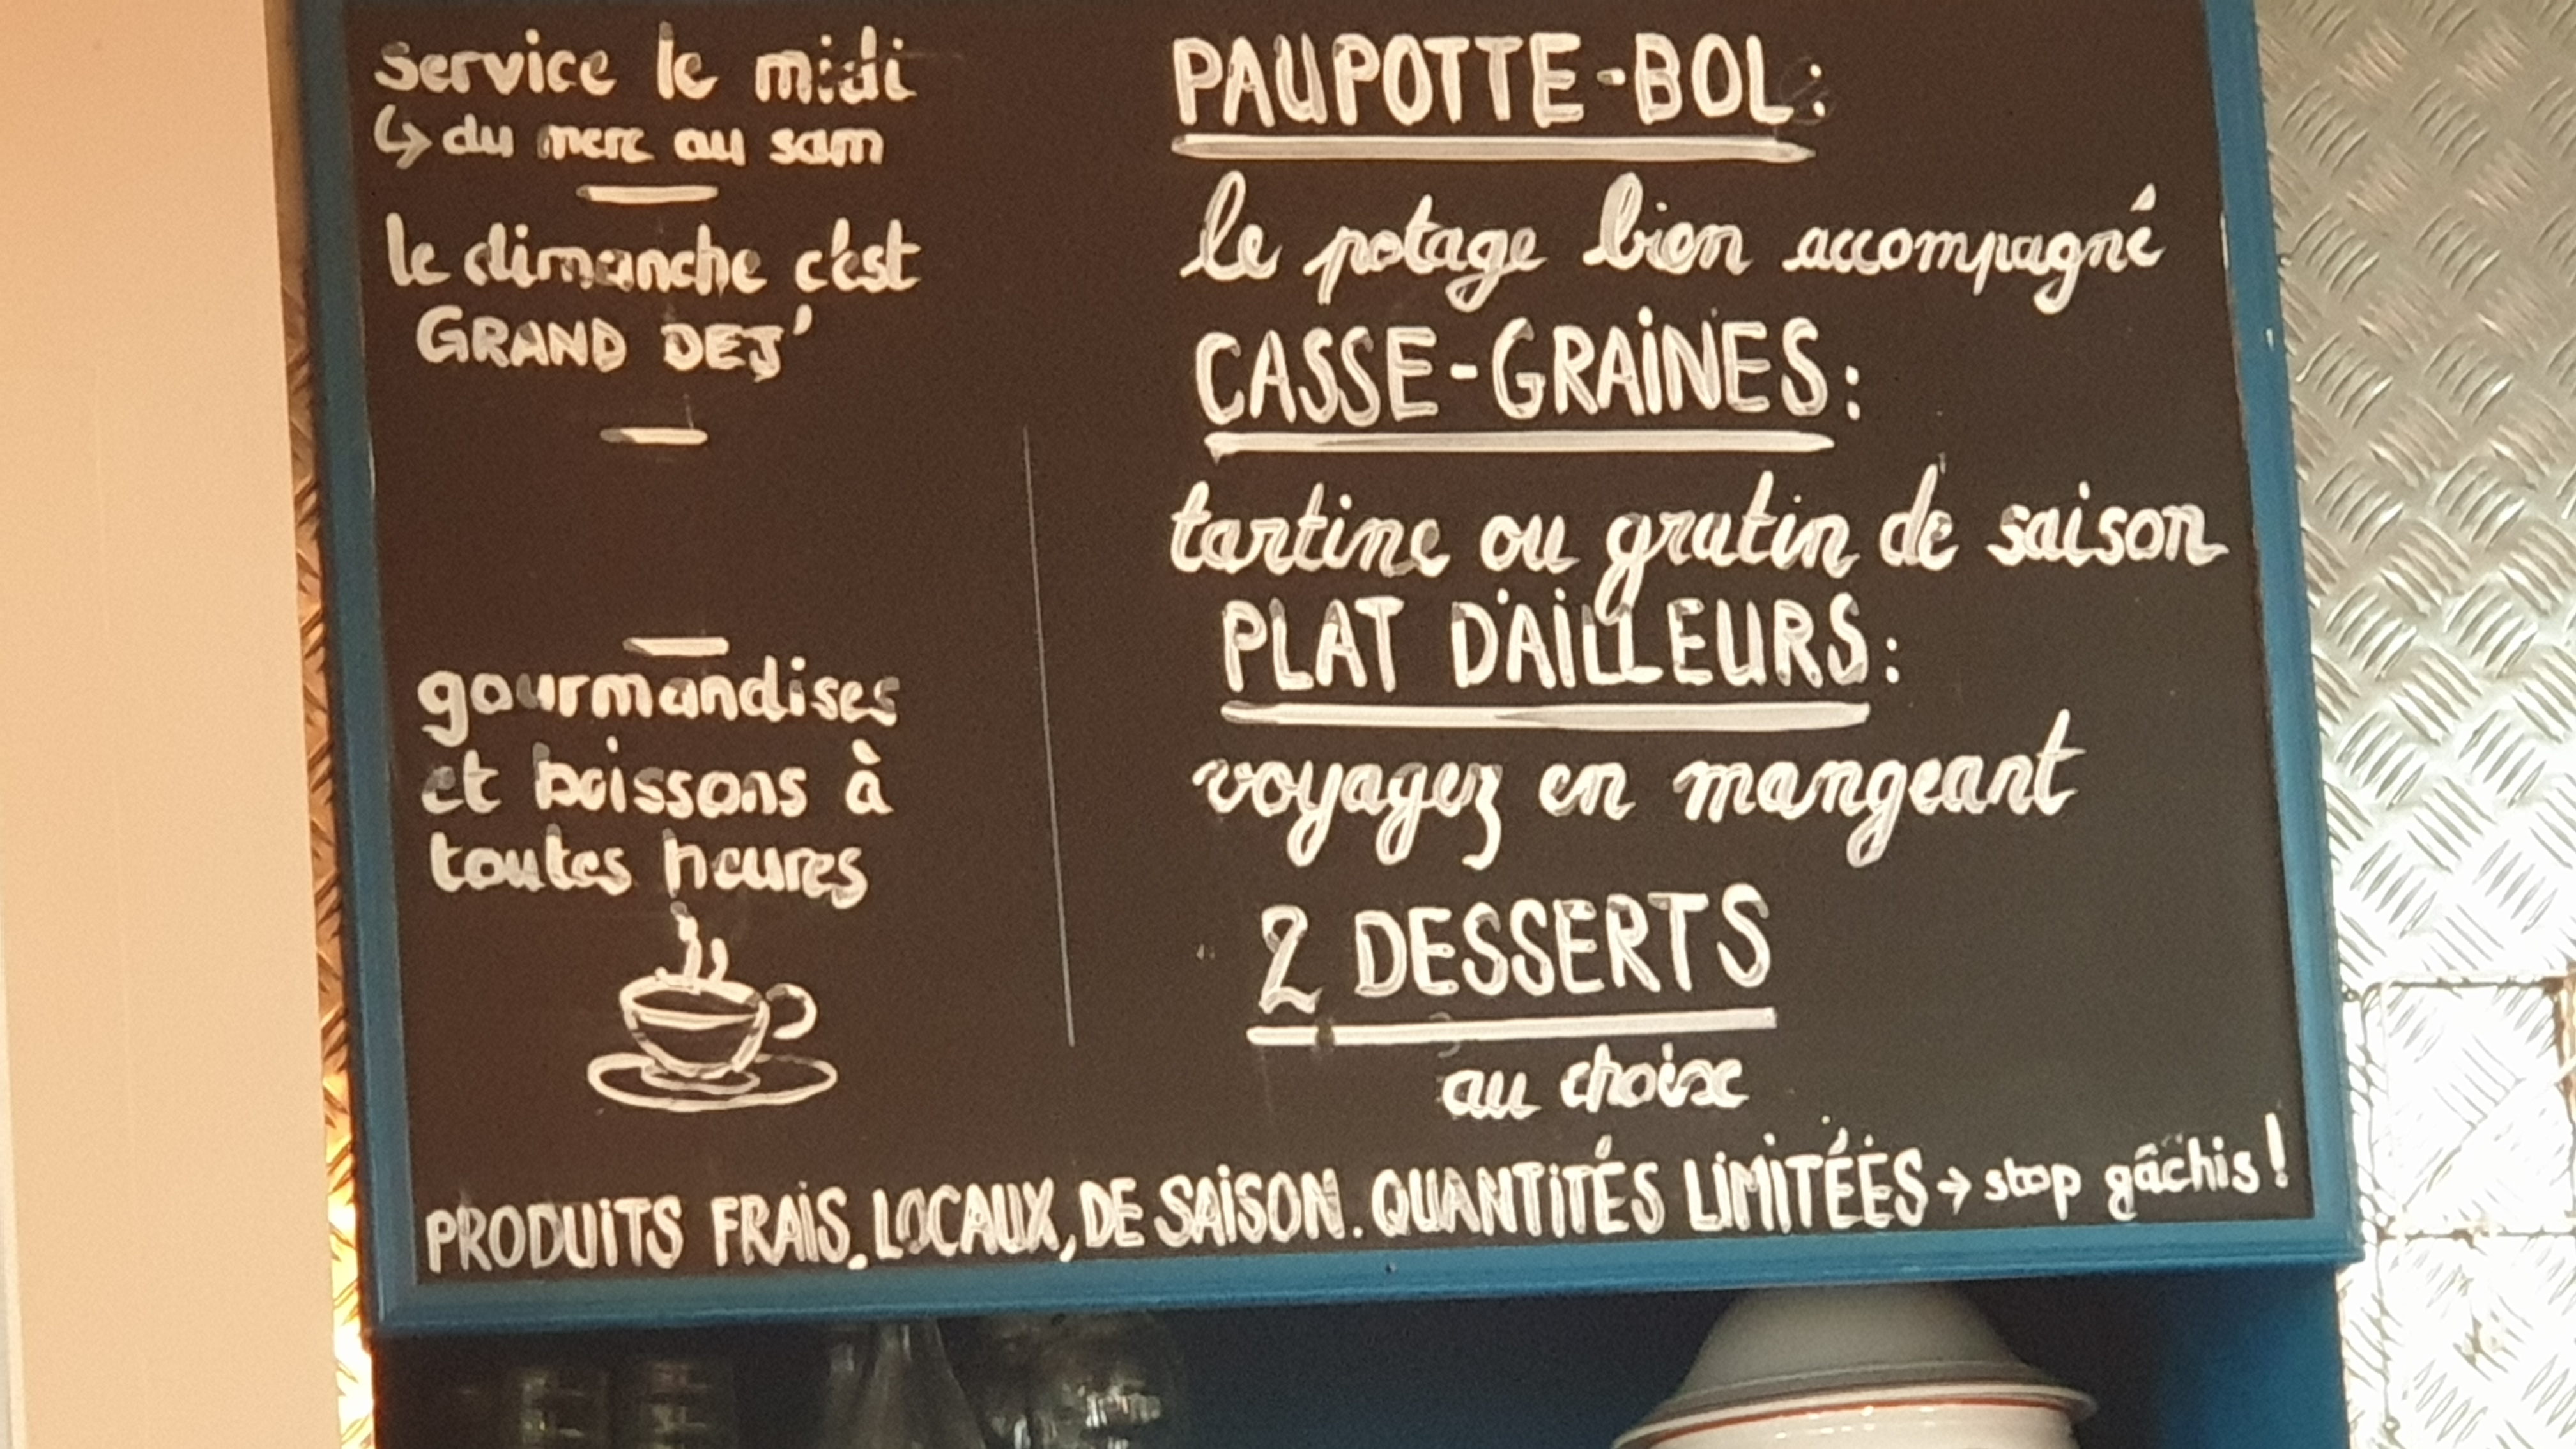 service le midi
↳ du merc au sam
le dimanche c'est
GRAND DEJ'
gourmandises
et boissons à
toutes heures
PAUPOTTE-BOL:
le potage bien accompagné
CASSE-GRAINES:
tartine ou gratin de saison
PLAT D'AILLEURS:
voyagez en mangeant
2 DESSERTS
au choix
PRODUITS FRAIS, LOCAUX, DE SAISON. QUANTITÉS LIMITÉES → stop gâchis!